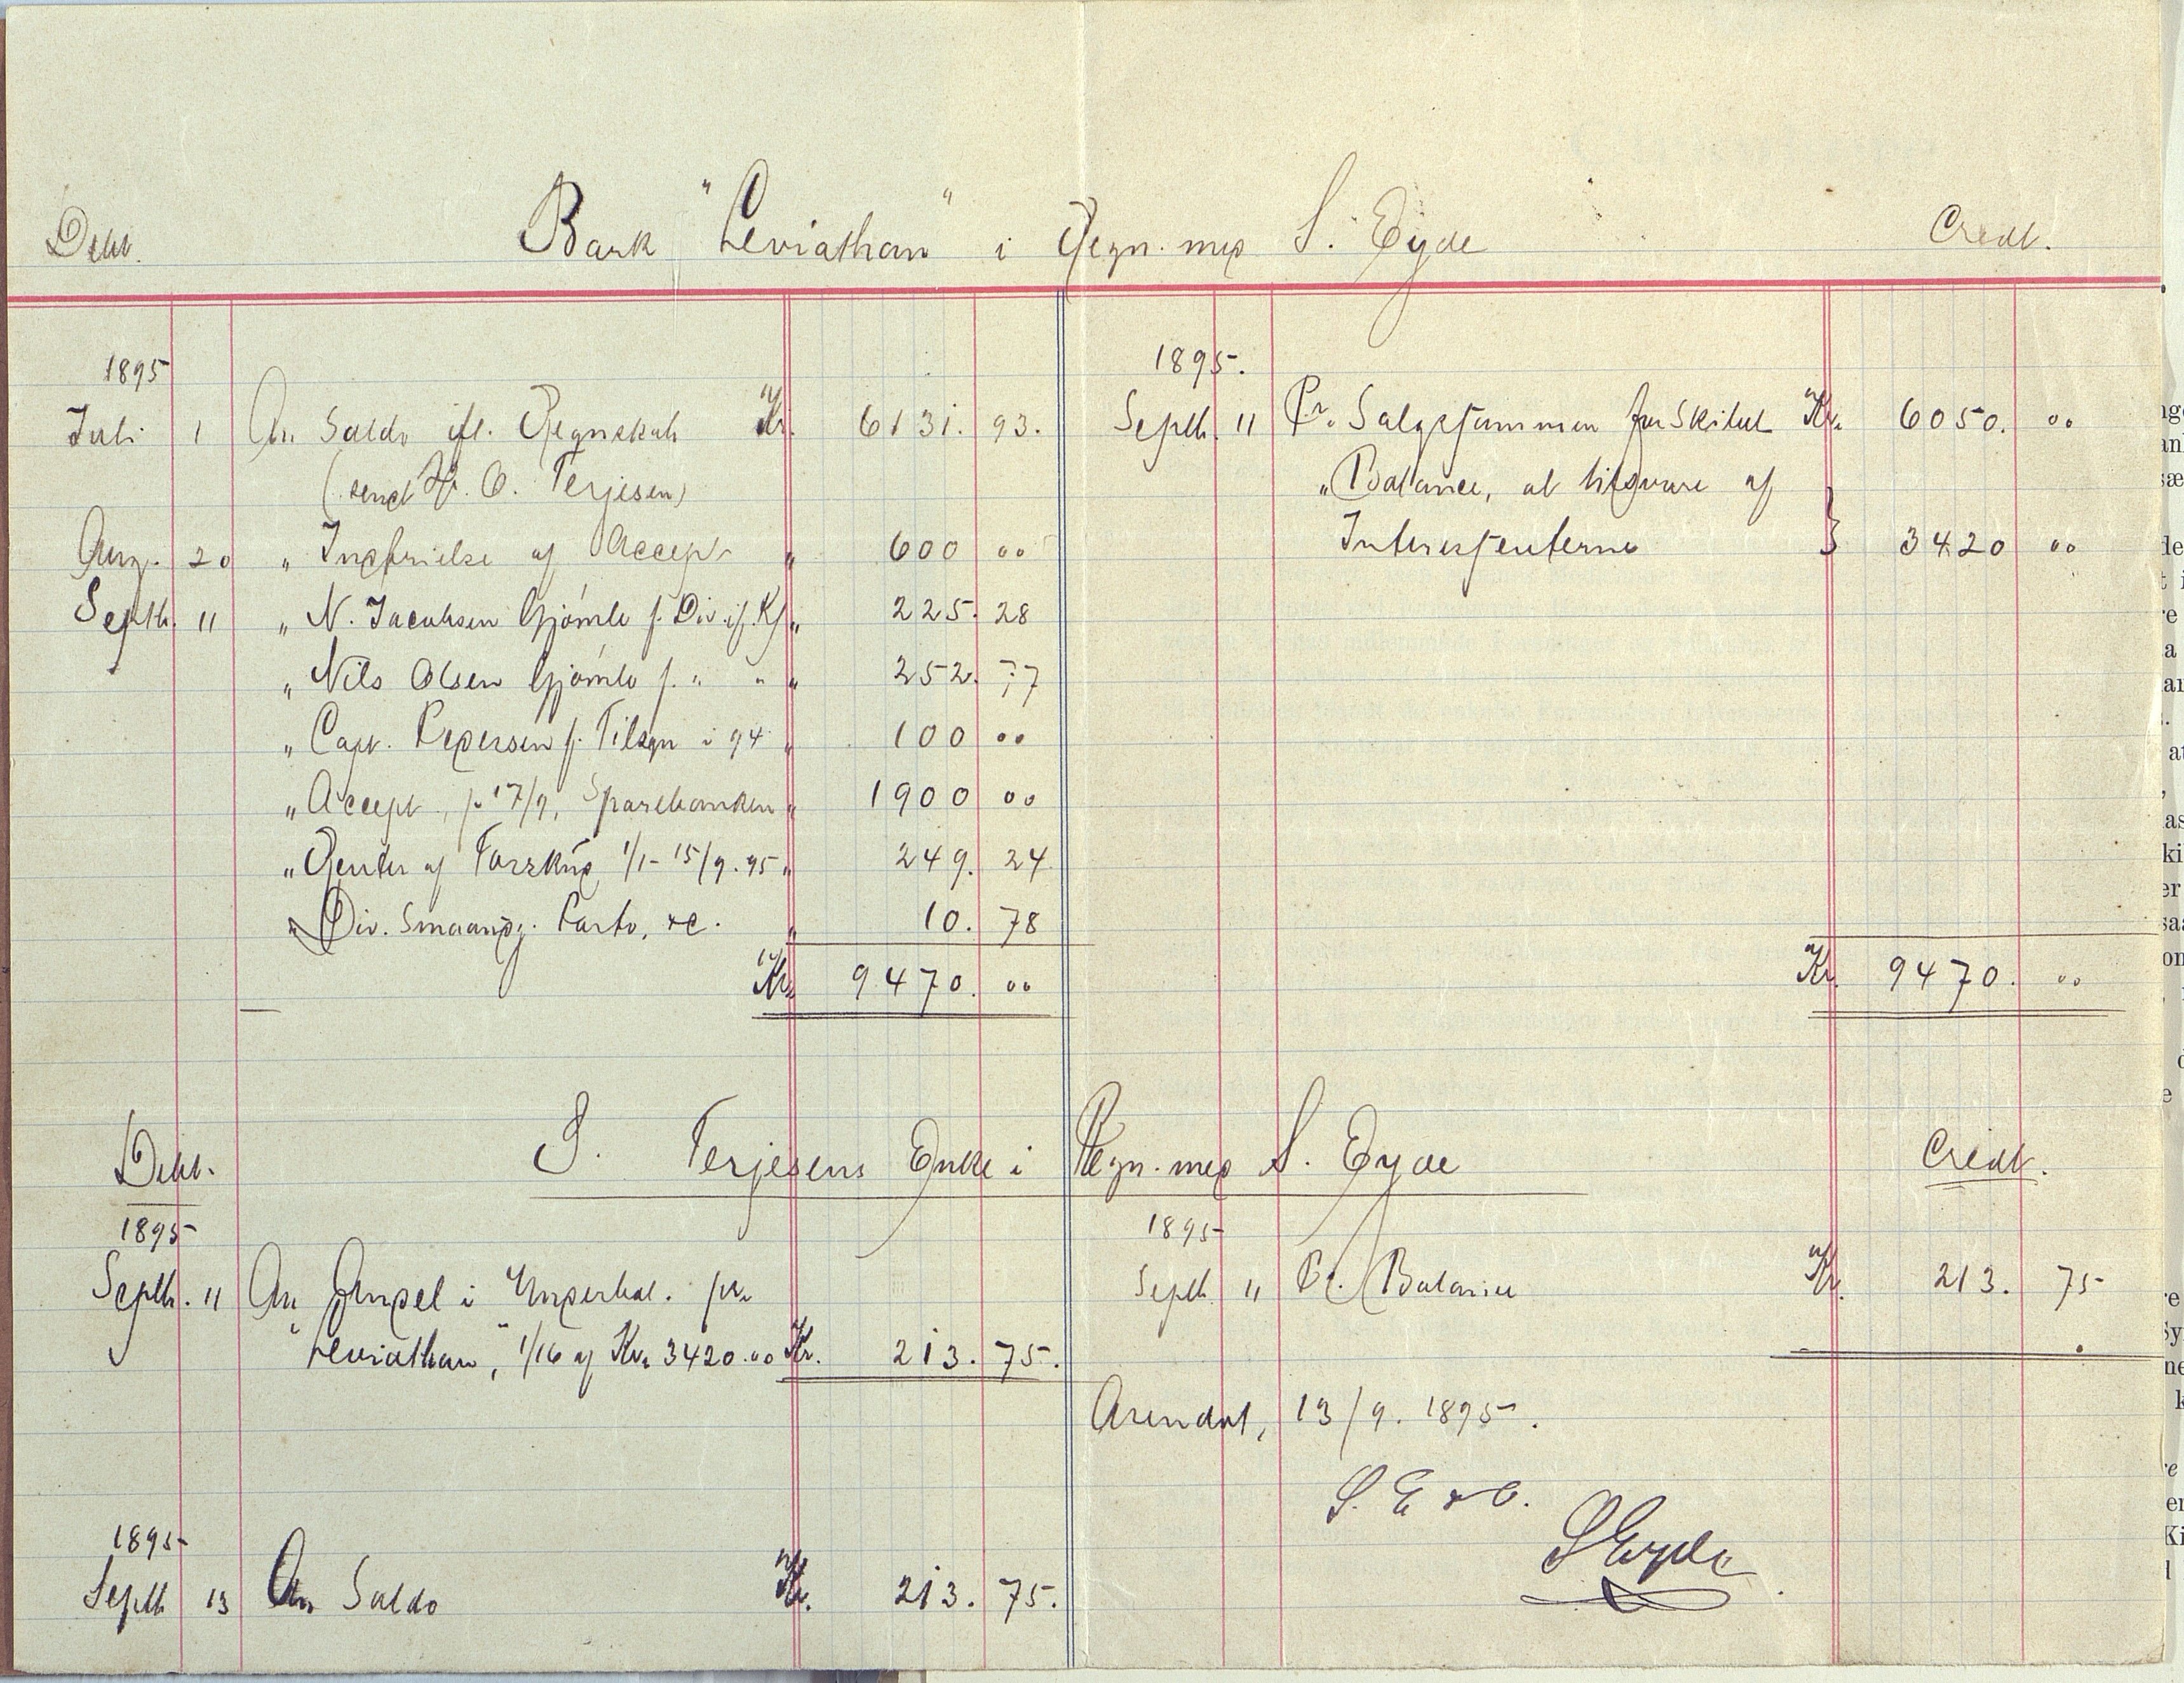 Debt. Bark "Leviathan" i Regn. med S. Eyde Credt.
1895
Juli 1 An Saldo ifl. Regnskab Kr. 6131. 93.
(sendt Hr. O. Terjesen)
Aug. 20 " Indfrielse af Accept " 600 00
Septb. 11 " N. Jacobsen Gjømle f. Div. if. Kf " 225. 28
" Nils Olsen Gjømle f. " " " 252. 77
" Capt. Pedersen f. Tilsyn i 94 " 100 00
" Accept p. 17/9, Sparebanken " 1900 00
" Renter af Forskud 1/1 - 15/9. 95 " 249. 24
" Div. Smaaudg. Porto, &c. " 10. 78
Kr. 9470. 00
1895.
Septb. 11 Pr. Salgssummen for Skibet Kr. 6050. 00
" Balance, at tilsvare af
Interessenterne } 3420 00
Kr. 9470. 00
Debt. S. Terjesens Enke i Regn. med S. Eyde Credt.
1895
Septb. 11 An Andel i Underbal. pr.
"Leviathan", 1/16 af Kr. 3420.00 Kr. 213. 75.
1895
Septb. 11 Pr. Balance Kr. 213. 75
Arendal, 13/9. 1895.
S. E & O.
SEyde
1895
Septb 13 An Saldo Kr. 213. 75.